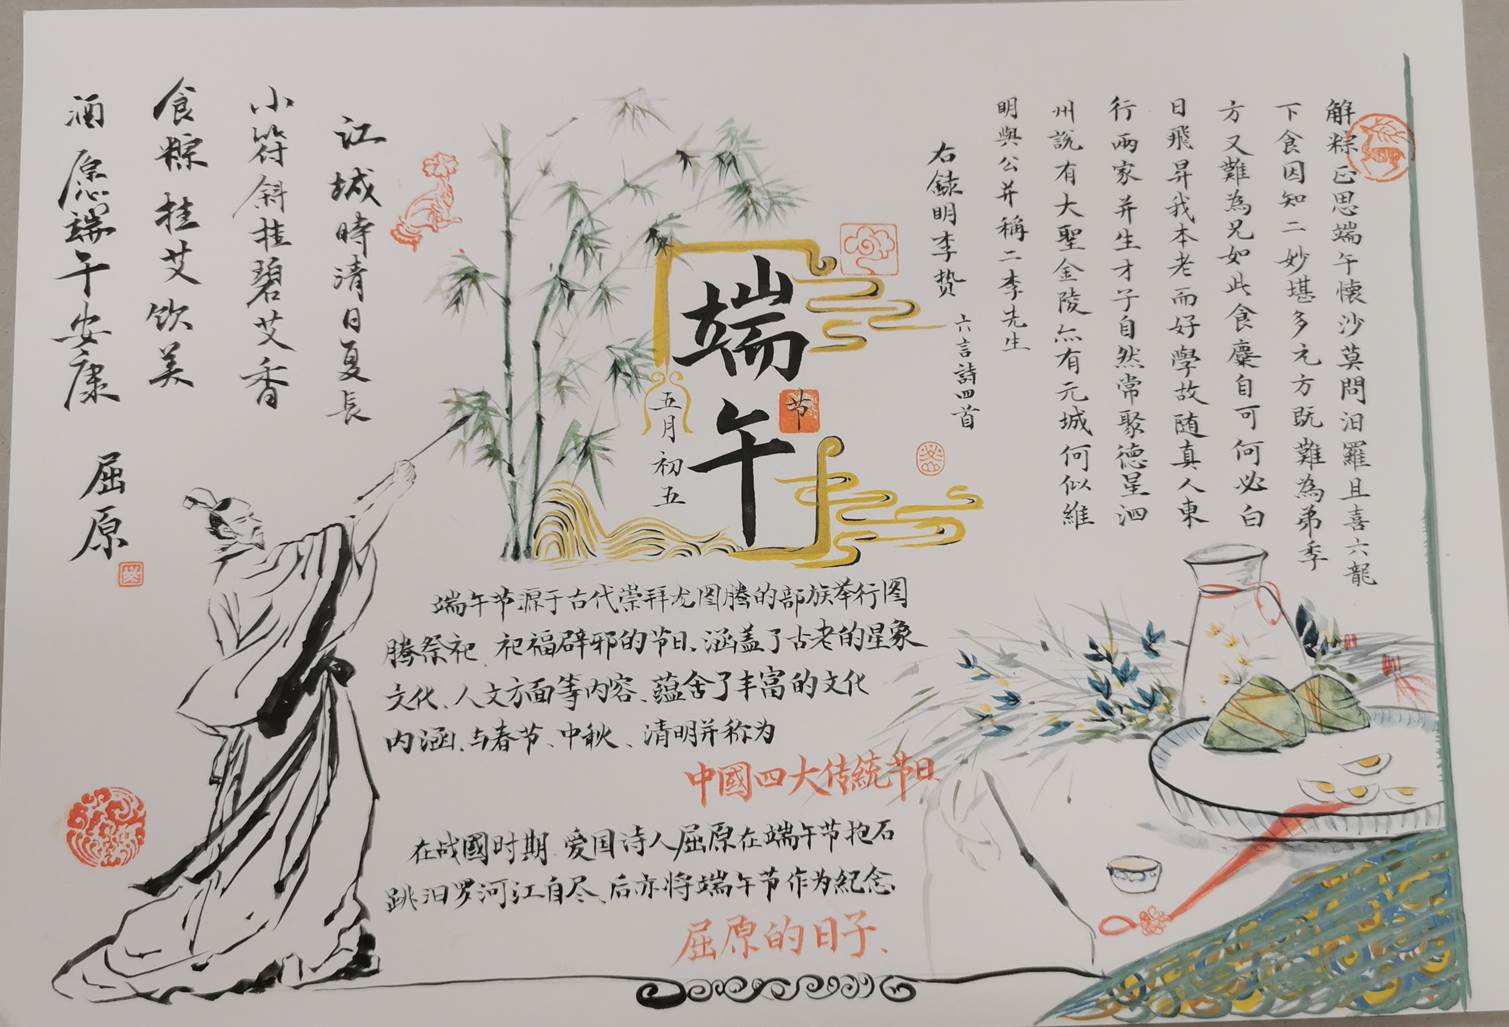 解粽正思端午懷沙莫問汨羅且喜六龍
下食因知二妙堪多元方既難為弟季
方又難為兄如此食麋自可何必白
日飛昇我本老而好學故随真人東
行兩家并生才子自然常聚德星泗
州說有大聖金陵亦有元城何似維
明與公并稱二李先生
右録明李贽 六言詩四首
端午
节
五月初五
江城時清日夏長
小符斜挂碧艾香
食粽挂艾饮美
酒愿端午安康
屈原
端午节源于古代崇拜龙图腾的部族举行图
腾祭祀、祀福辟邪的节日、涵盖了古老的星象
文化、人文方面等内容、蕴含了丰富的文化
内涵、与春节、中秋、清明并称为
中國四大传統节日
在战國时期、爱国诗人屈原在端午节抱石
跳汨罗河江自尽、后亦将端午节作为紀念
屈原的日子、